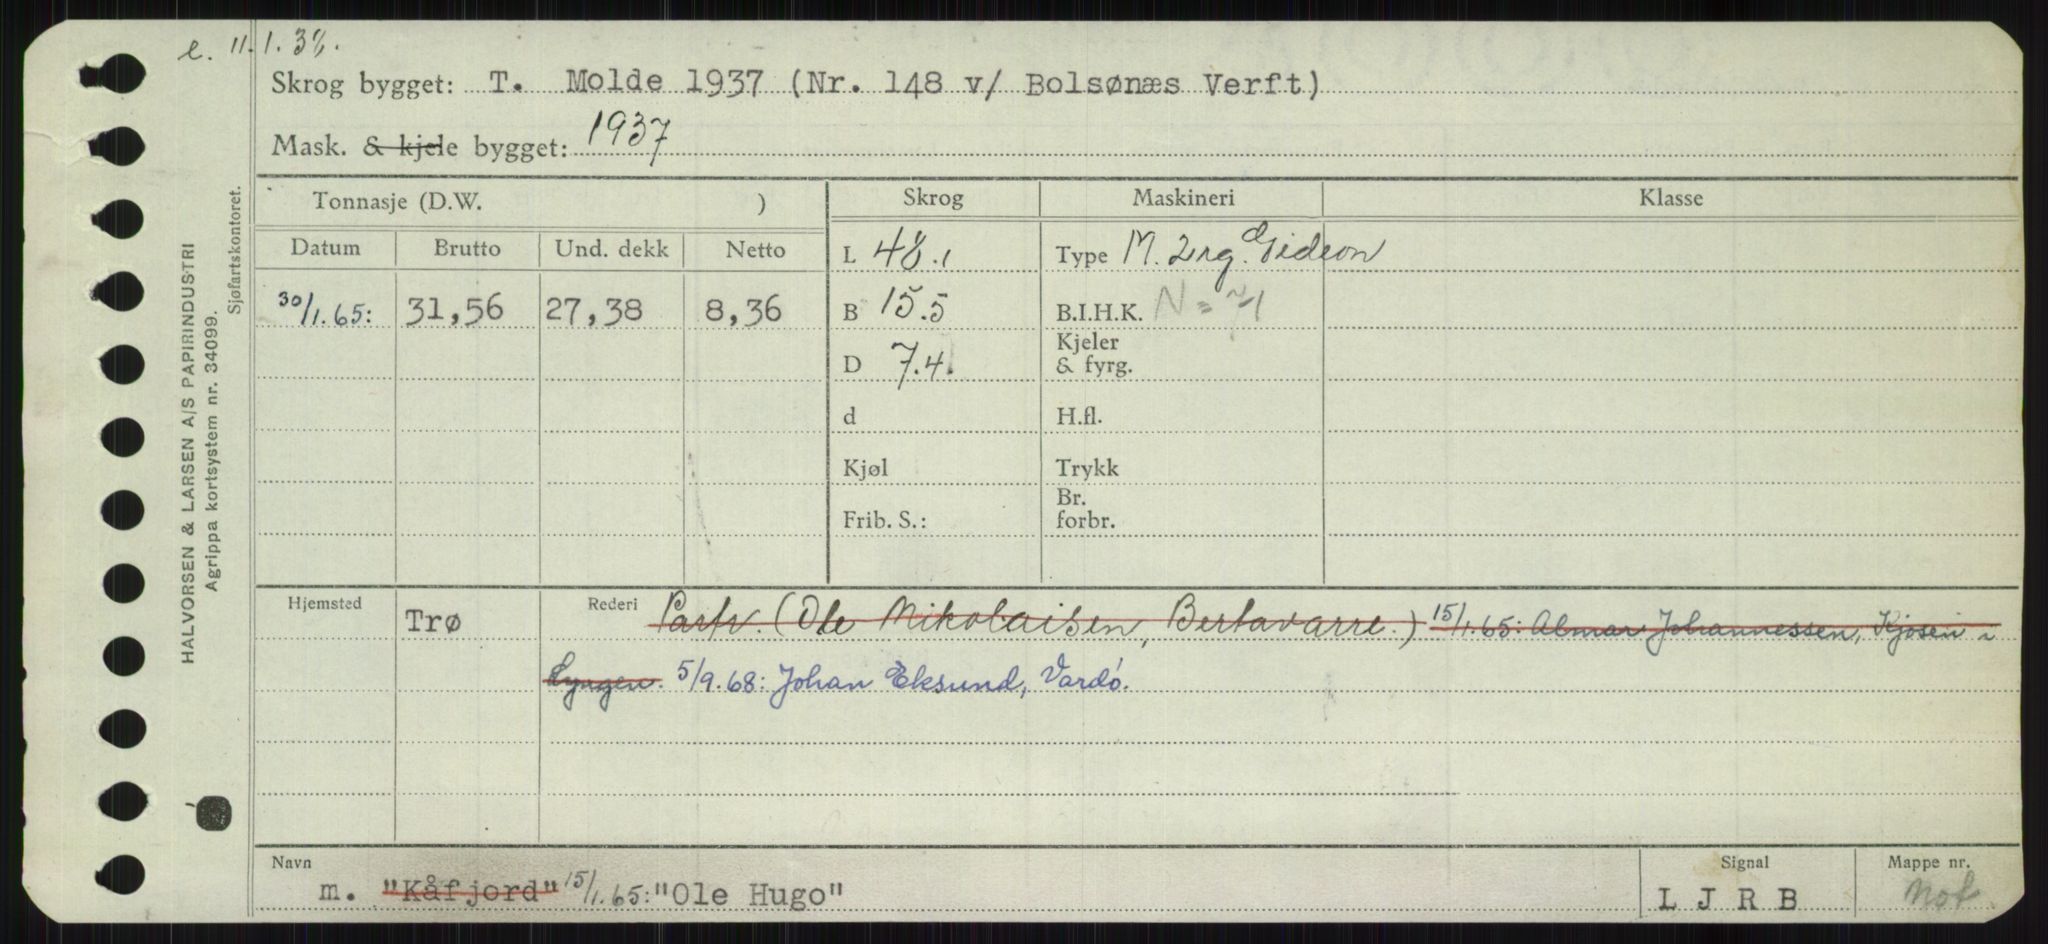 e. 11.1.38.
Skrog bygget: T. Molde 1937 (Nr. 148 v/ Bolsønæs Verft)
Mask. & kjele bygget: 1937
HALVORSEN & LARSEN A/S PAPIRINDUSTRI
Agrippa kortsystem nr. 34099.
Sjøfartskontoret.
Tonnasje (D.W. ) Skrog Maskineri Klasse
Datum Brutto Und. dekk Netto L 48.1 Type M. 2 Gideon
30/1.65: 31,56 27,38 8,36 B 15.5 B.I.H.K. N =
D 7.4. Kjeler & fyrg.
d H.fl.
Kjøl Trykk
Frib. S.: Br. forbr.
Hjemsted Trø Rederi Partr. (Ole Nikolaisen, Bertavarre.) 15/1.65: Almar Johannessen, Kjosen i
Lyngen. 5/9.68: Johan Eksund, Vardö.
Navn Signal Mappe nr.
m. "Kåfjord" 15/1.65: "Ole Hugo" L J R B Not